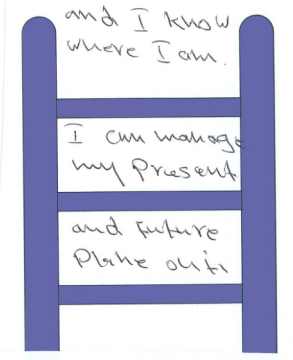 and I know
where I am.
I can manage
my Present
and Future